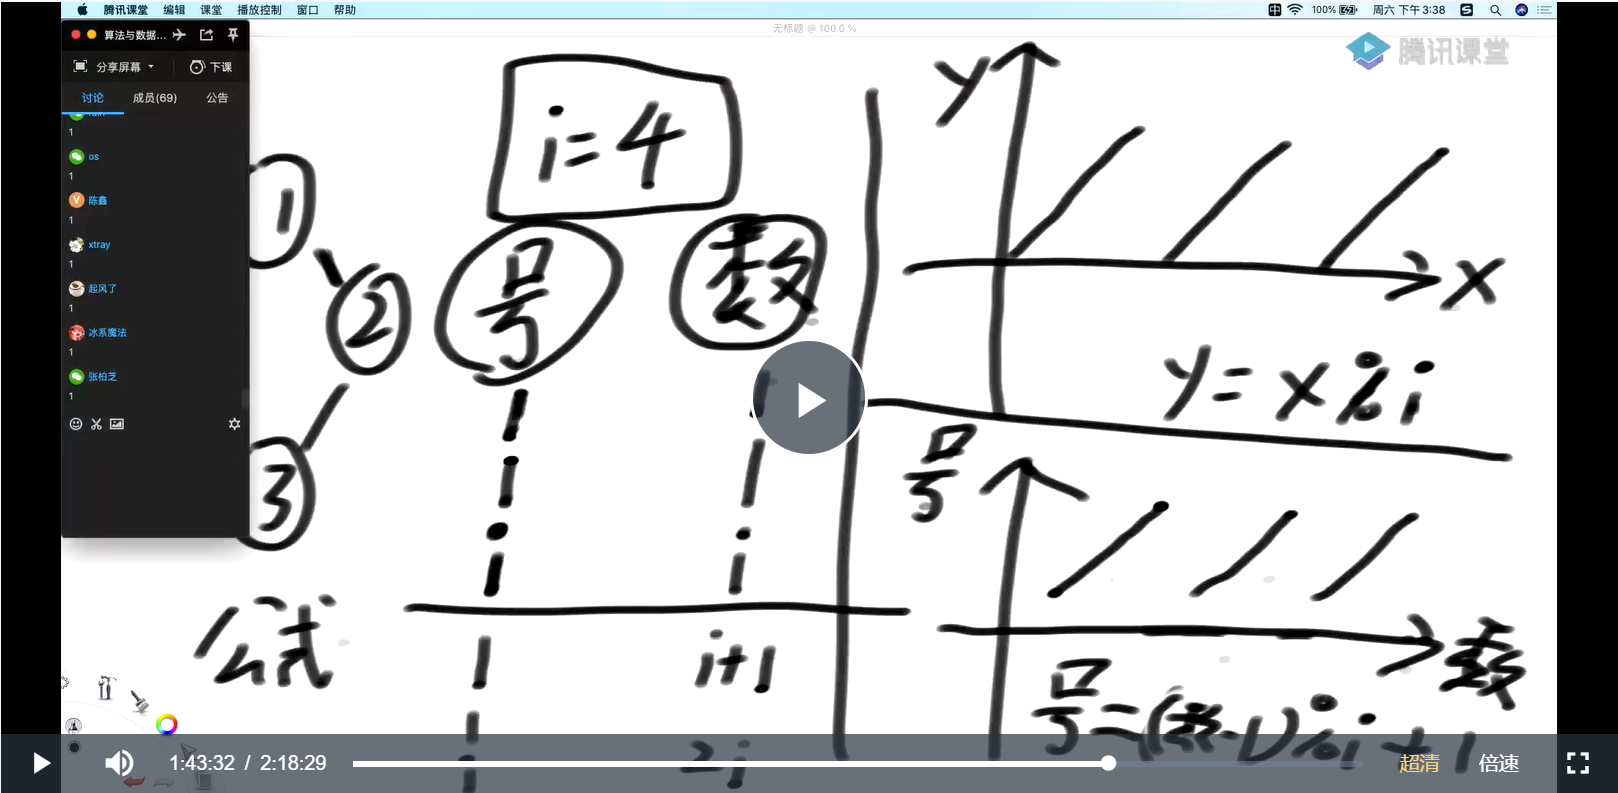 腾讯课堂 编辑 课堂 播放控制 窗口 帮助
100% 周六 下午 3:38
无标题 @ 100.0 %
算法与数据...
分享屏幕 下课
讨论 成员(69) 公告
1
os
1
陈鑫
1
xtray
1
起风了
1
冰系魔法
1
张柏芝
1
腾讯课堂
i=4
① ② ③
号 数
1
1
公式
1 i+1
1 2i
y
x
y=x%i
号
数
号=(数-1)%i+1
1:43:32 / 2:18:29
超清 倍速